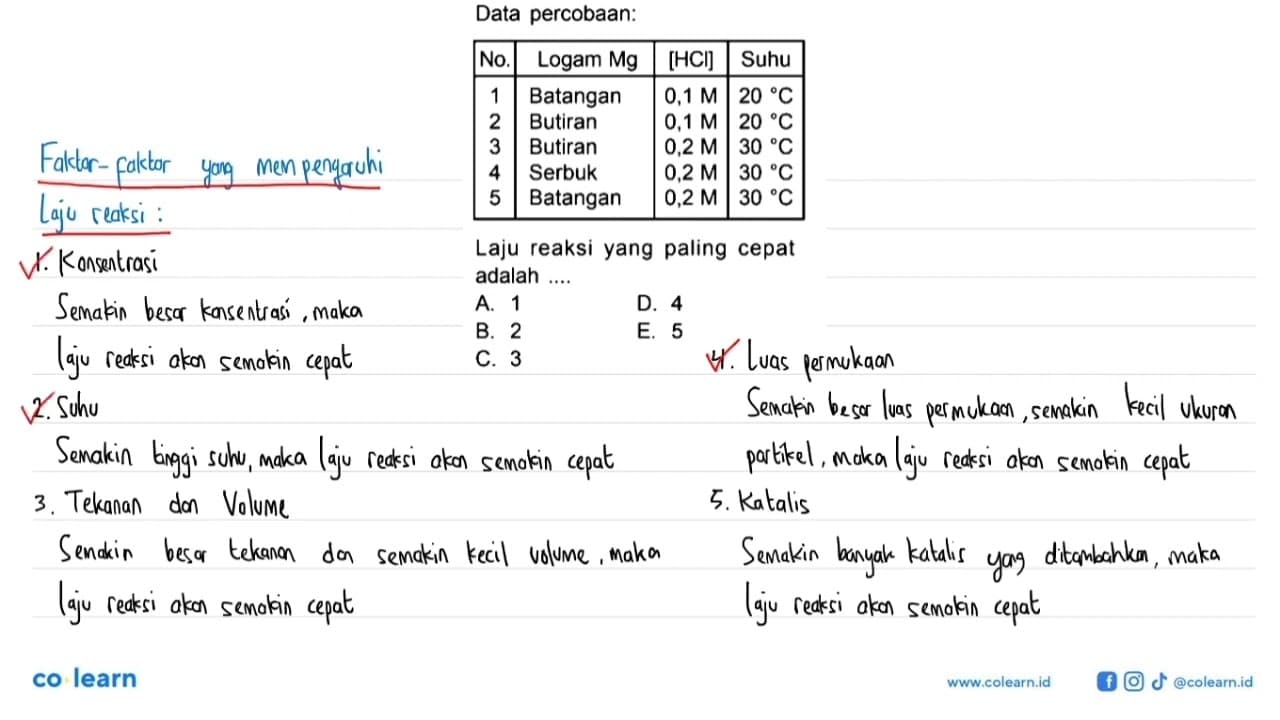 Data percobaan:
No. Logam Mg [HCl] Suhu
1 Batangan 0,1 M 20 °C
2 Butiran 0,1 M 20 °C
3 Butiran 0,2 M 30 °C
4 Serbuk 0,2 M 30 °C
5 Batangan 0,2 M 30 °C
Laju reaksi yang paling cepat
adalah ....
A. 1 D. 4
B. 2 E. 5
C. 3
Faktor-faktor yang mempengaruhi
Laju reaksi :
1. Konsentrasi
Semakin besar konsentrasi, maka
laju reaksi akan semakin cepat
2. Suhu
Semakin tinggi suhu, maka laju reaksi akan semakin cepat
3. Tekanan dan Volume
Semakin besar tekanan dan semakin kecil volume, maka
laju reaksi akan semakin cepat
4. Luas permukaan
Semakin besar luas permukaan, semakin kecil ukuran
partikel, maka laju reaksi akan semakin cepat
5. Katalis
Semakin banyak katalis yang ditambahkan, maka
laju reaksi akan semakin cepat
co learn
www.colearn.id
@colearn.id